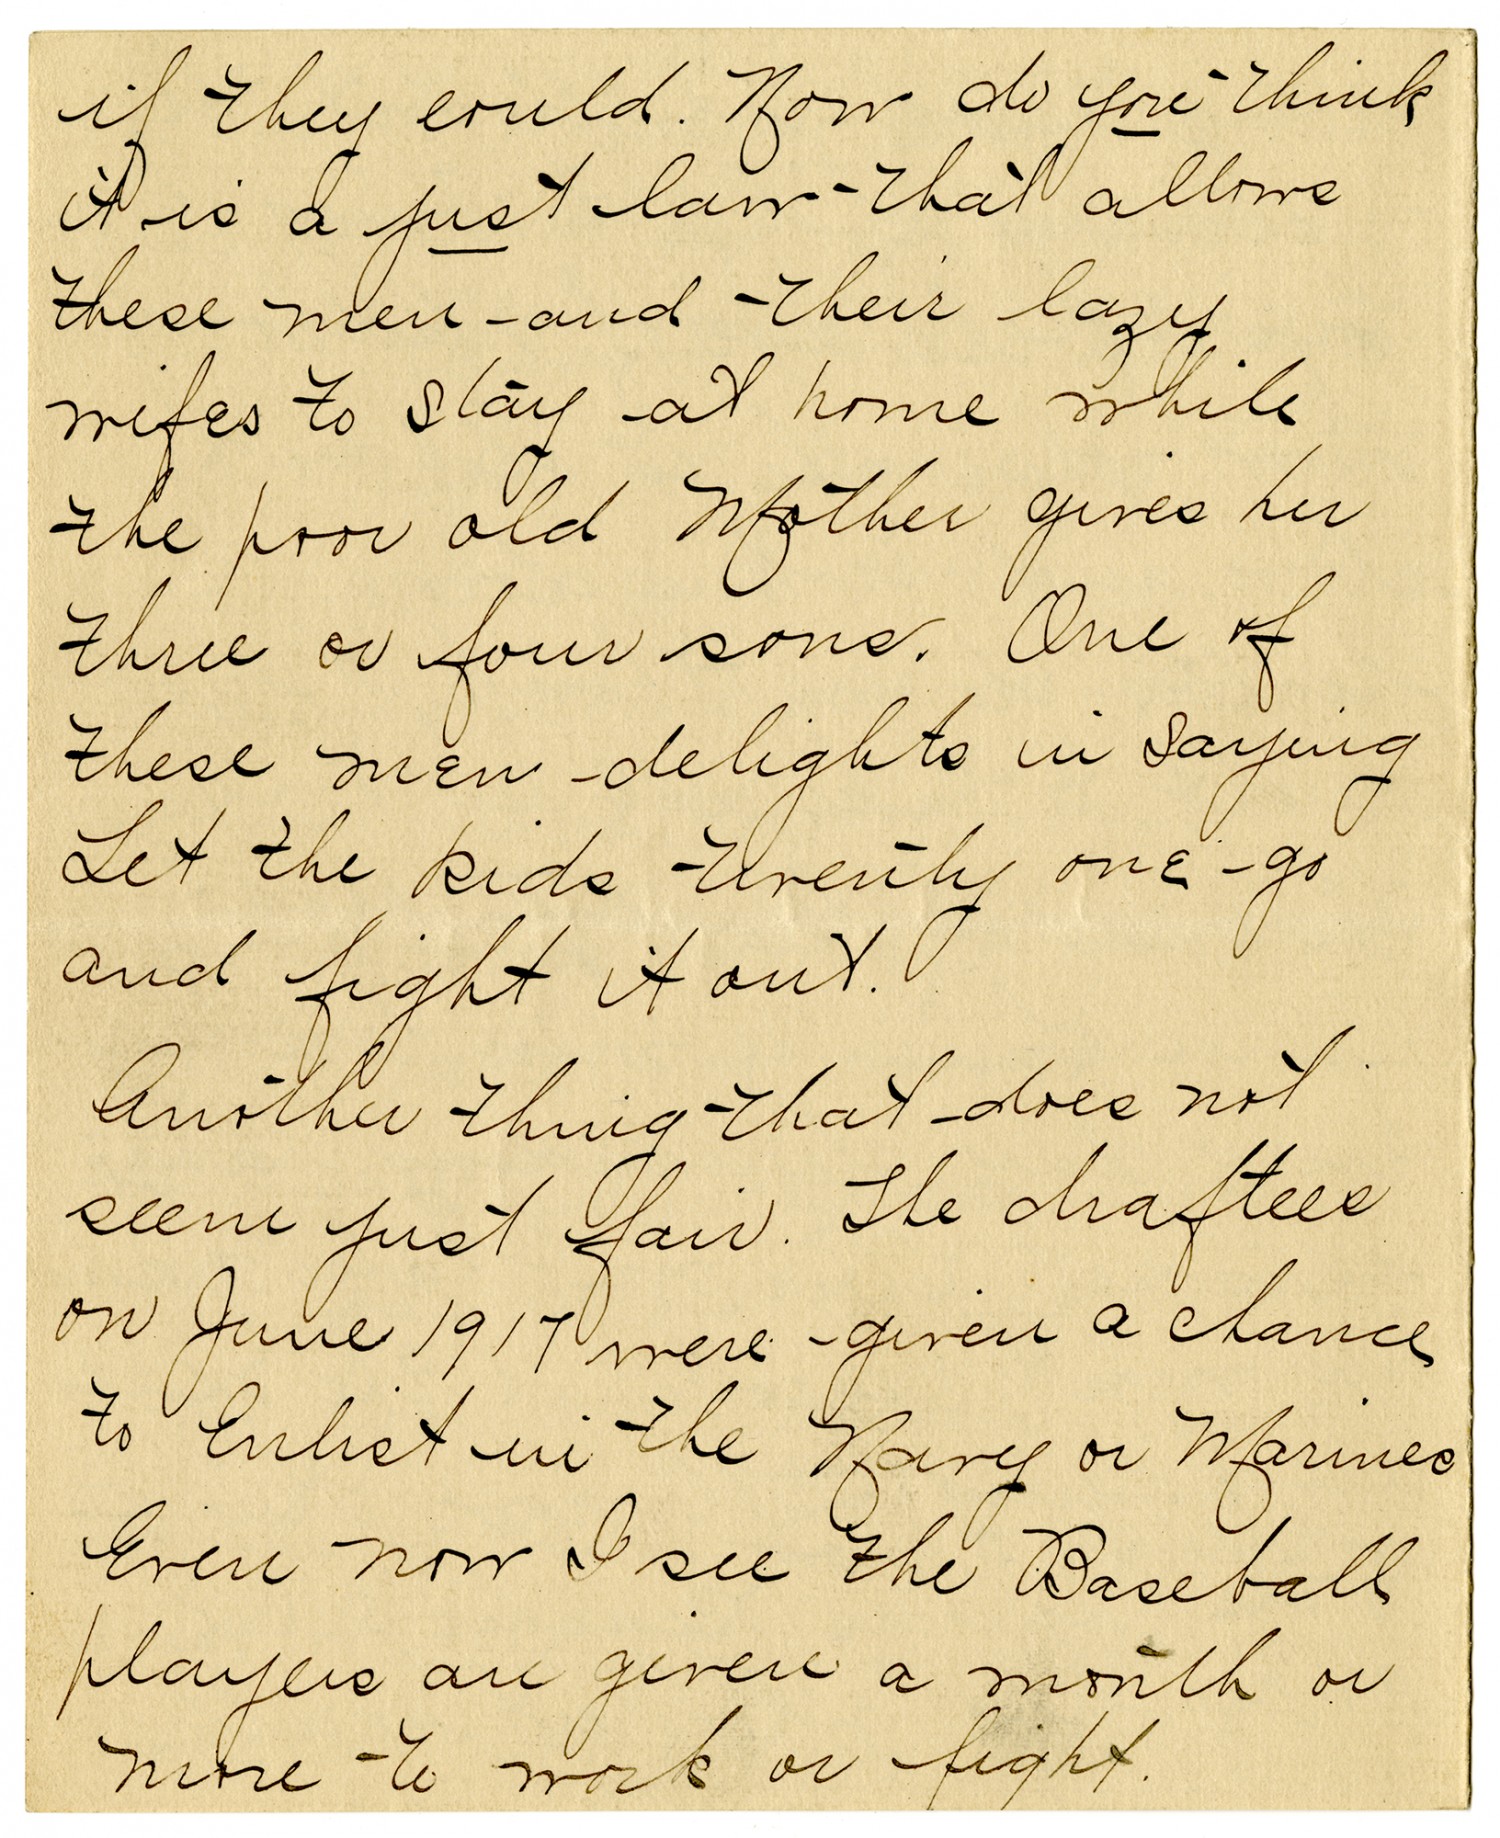 if they could. Now do you think
it is a just law that allows
these men and their lazy
wifes to stay at home while
the poor old Mother gives her
three or four sons. One of
these men delights in saying
Let the kids twenty one go
and fight it out.
Another thing that does not
seem just fair. The draftees
on June 1917 were given a chance
to Enlist in the Navy or Marines
Even now I see the Baseball
players are given a month or
more to work or fight.